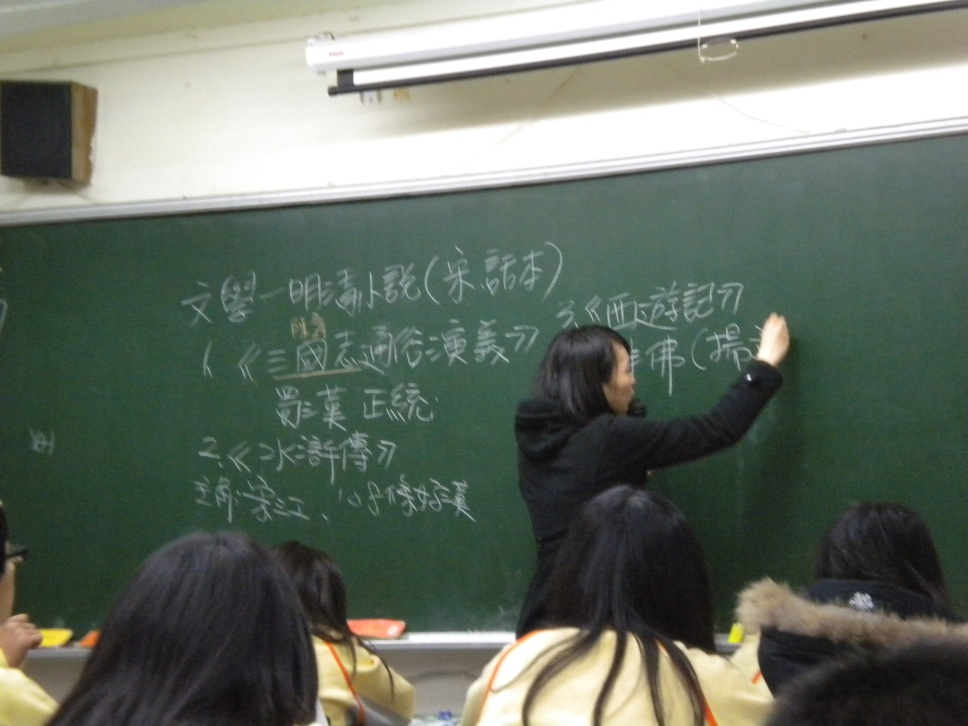 文學－明清小說（宋.話本）
1.《三國志通俗演義》
蜀漢正統.
2.《水滸傳》
宋江、108條好漢
3.《西遊記》
佛（揚